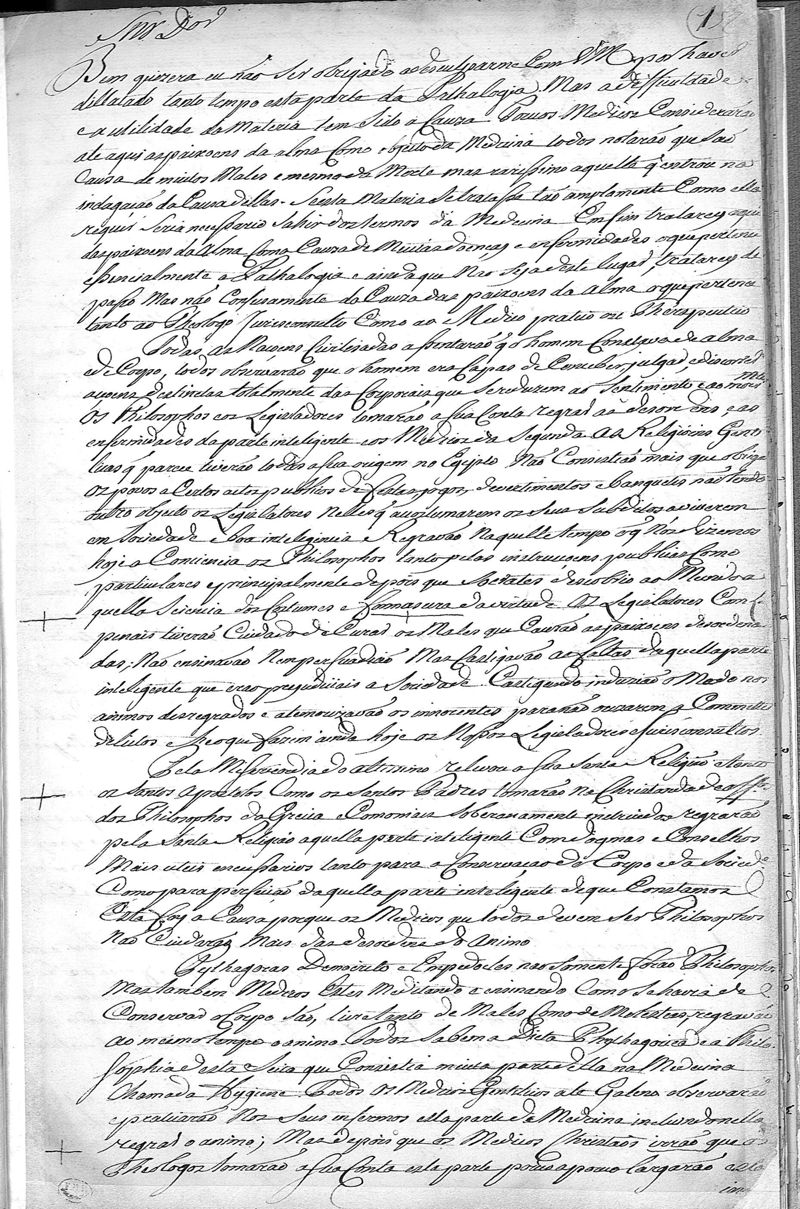 Snr Dor
1
Bem quizera eu não ser obrigado a desculparme com VM por haver
dillatado tanto tempo esta parte da Pathalogia. Mas a difficuldade
e a utilidade da Materia tem sido a Cauza. Poucos Medicos Considerarão
ate aqui as paixoens da alma como objeto da Medicina todos notarão que são
Cauza de muitos Males e mesmo da Morte mas rarissimo aquelle q' entrou na
indagação da Cauza dellas. Se nesta Materia se tratasse tão amplamente Como ella
requer seria necessario sahir dos termos da Medicina Emfim tratarey aqui
das paixoens da Alma Como Cauza de Muitas doenças e enfermidades o que pertence
essencialmente a Pathalogia e ainda que não seja deste lugar, tratarey de
passo mas não Confusamente da Cauza das paixoens da Alma o que pertence
tanto ao Theologo Jurisconsulto Como ao Medico pratico ou Therapeutico
Todas as Naçoens Civilisadas assentarão q' o homem Constava de alma
e de Corpo, todos observarão que o homem era Capas de Conceber julgar, e discorrer
acçoens distinctas totalmente das Corporais, que se reduzem ao Sentimento e ao movimto
Os Philosophos e os Legisladores tomarão a sua Conta regrar as desordens, e as
enfermidades da parte inteligente e os Medicos da Segunda As Religioens Gen
tilicas q' parece tiverão todas a sua origem no Egipto Não Consistião mais que obrigar
os povos a Certos actos publicos de festas jogos, devertimentos e banquetes não tendo
outro objeto os Legisladores nelles q' acostumarem os seus Subditos a viverem
em sociedade e boa inteligencia e Regravão naquelle tempo o q' Nós dizemos
hoje a Conciencia os Philosophos tanto pelas instrucçoens publicas Como
particulares e principalmente depois que Socrates descobrio ao Mundo a
quella Sciencia dos Costumes e fermosura da virtude Os Legisladores Com
penais tiverão Cuidado de Curar os Males que Cauzão as paixoens desordena
das; Não ensinavão Nem persuadião Mas Castigavão as faltas daquella parte
inteligente que erão prejudiciais a Sociedade Castigando induzião o Medo nos
animos desregrados e atemorizavão os innocentes para não ouzarem a Commeter
delictos e he o que fazem ainda hoje os Nossos Legisladores e Jurisconsultos
Pela Misericordia do altissimo relevou a sua Santa Religião e tanto
os Santos Apostolos Como os Santos Padres tomarão na Christandade o offo
dos Philosophos da Grecia e Como mais Soberanamente instruidos regrarão
pela Santa Religião aquella parte inteligente Com dogmas e Conselhos
Mais uteis e necessarios tanto para a Conservação do Corpo e da Socieda
Como para perfeição daquella parte inteligente de que Constamos
Esta foy a Cauza porque os Medicos que todos devem ser Philosophos
Não Cuidarão mais das desordens do Animo
Pythagoras Democrito e Empedocles não somente forão Philosophos
Mas tambem Medicos Estes Meditando e ensinando Como se havia de
Conservar o Corpo são, livre tanto de Males Como de Molestias, regravão
ao mesmo tempo o animo. Todos Sabem a Dieta Phythagorica e a Philo
sophia desta Seita que Consistia muita parte della na Medicina
Chamada Hygiene Todos os Medicos Gentilicos ate Galeno observarão
e praticarão Nos seus enfermos esta parte da Medicina incluindo nella
regrar o animo; Mas depois que os Medicos Christãos virão que os
Theologos tomarão a sua Conta esta parte pouco a pouco largarão esta